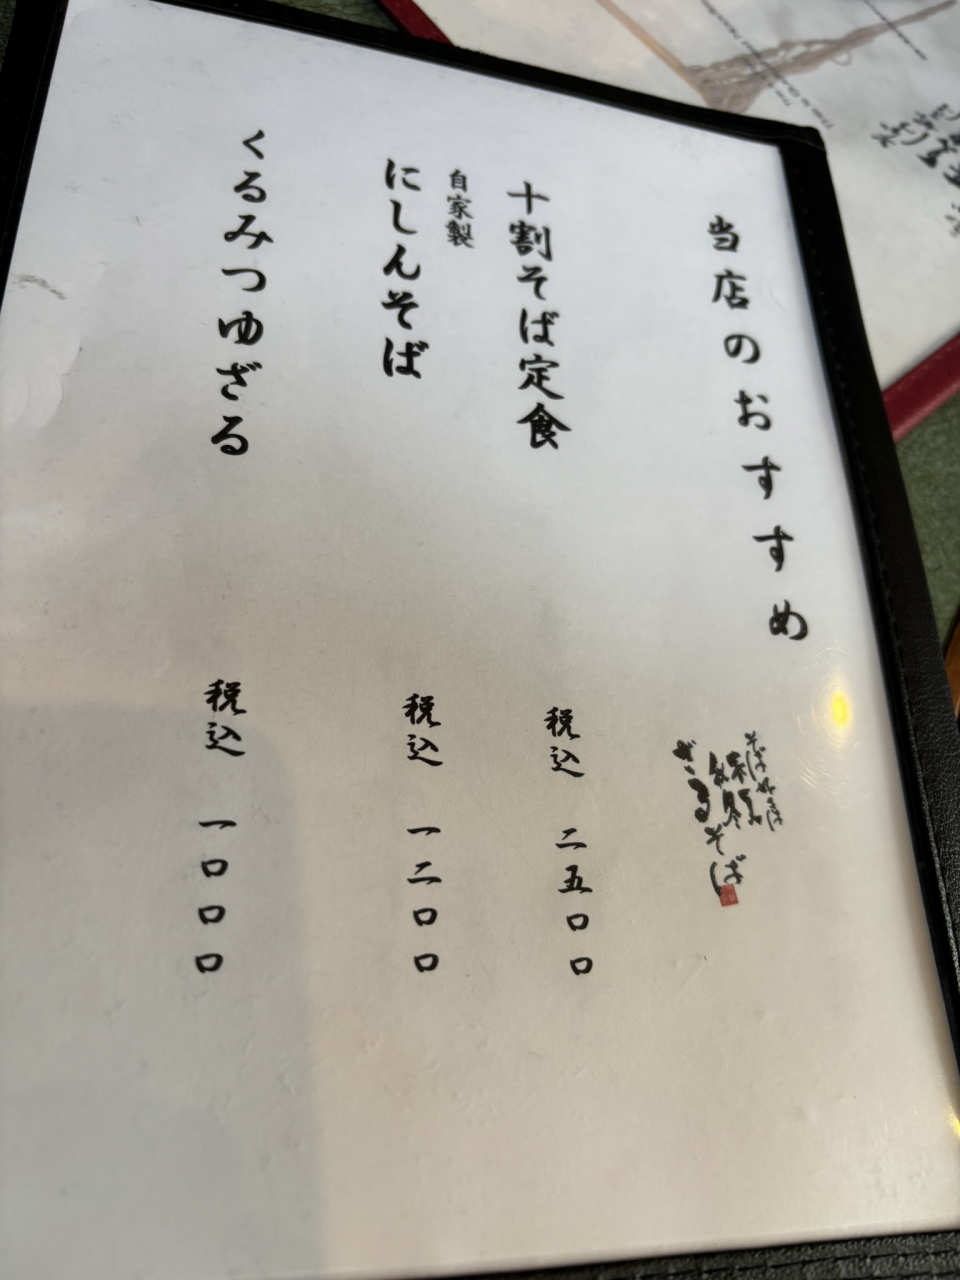 当店のおすすめ
十割そば定食 税込 二五〇〇
自家製
にしんそば 税込 一二〇〇
くるみつゆざる 税込 一〇〇〇
ざるそば